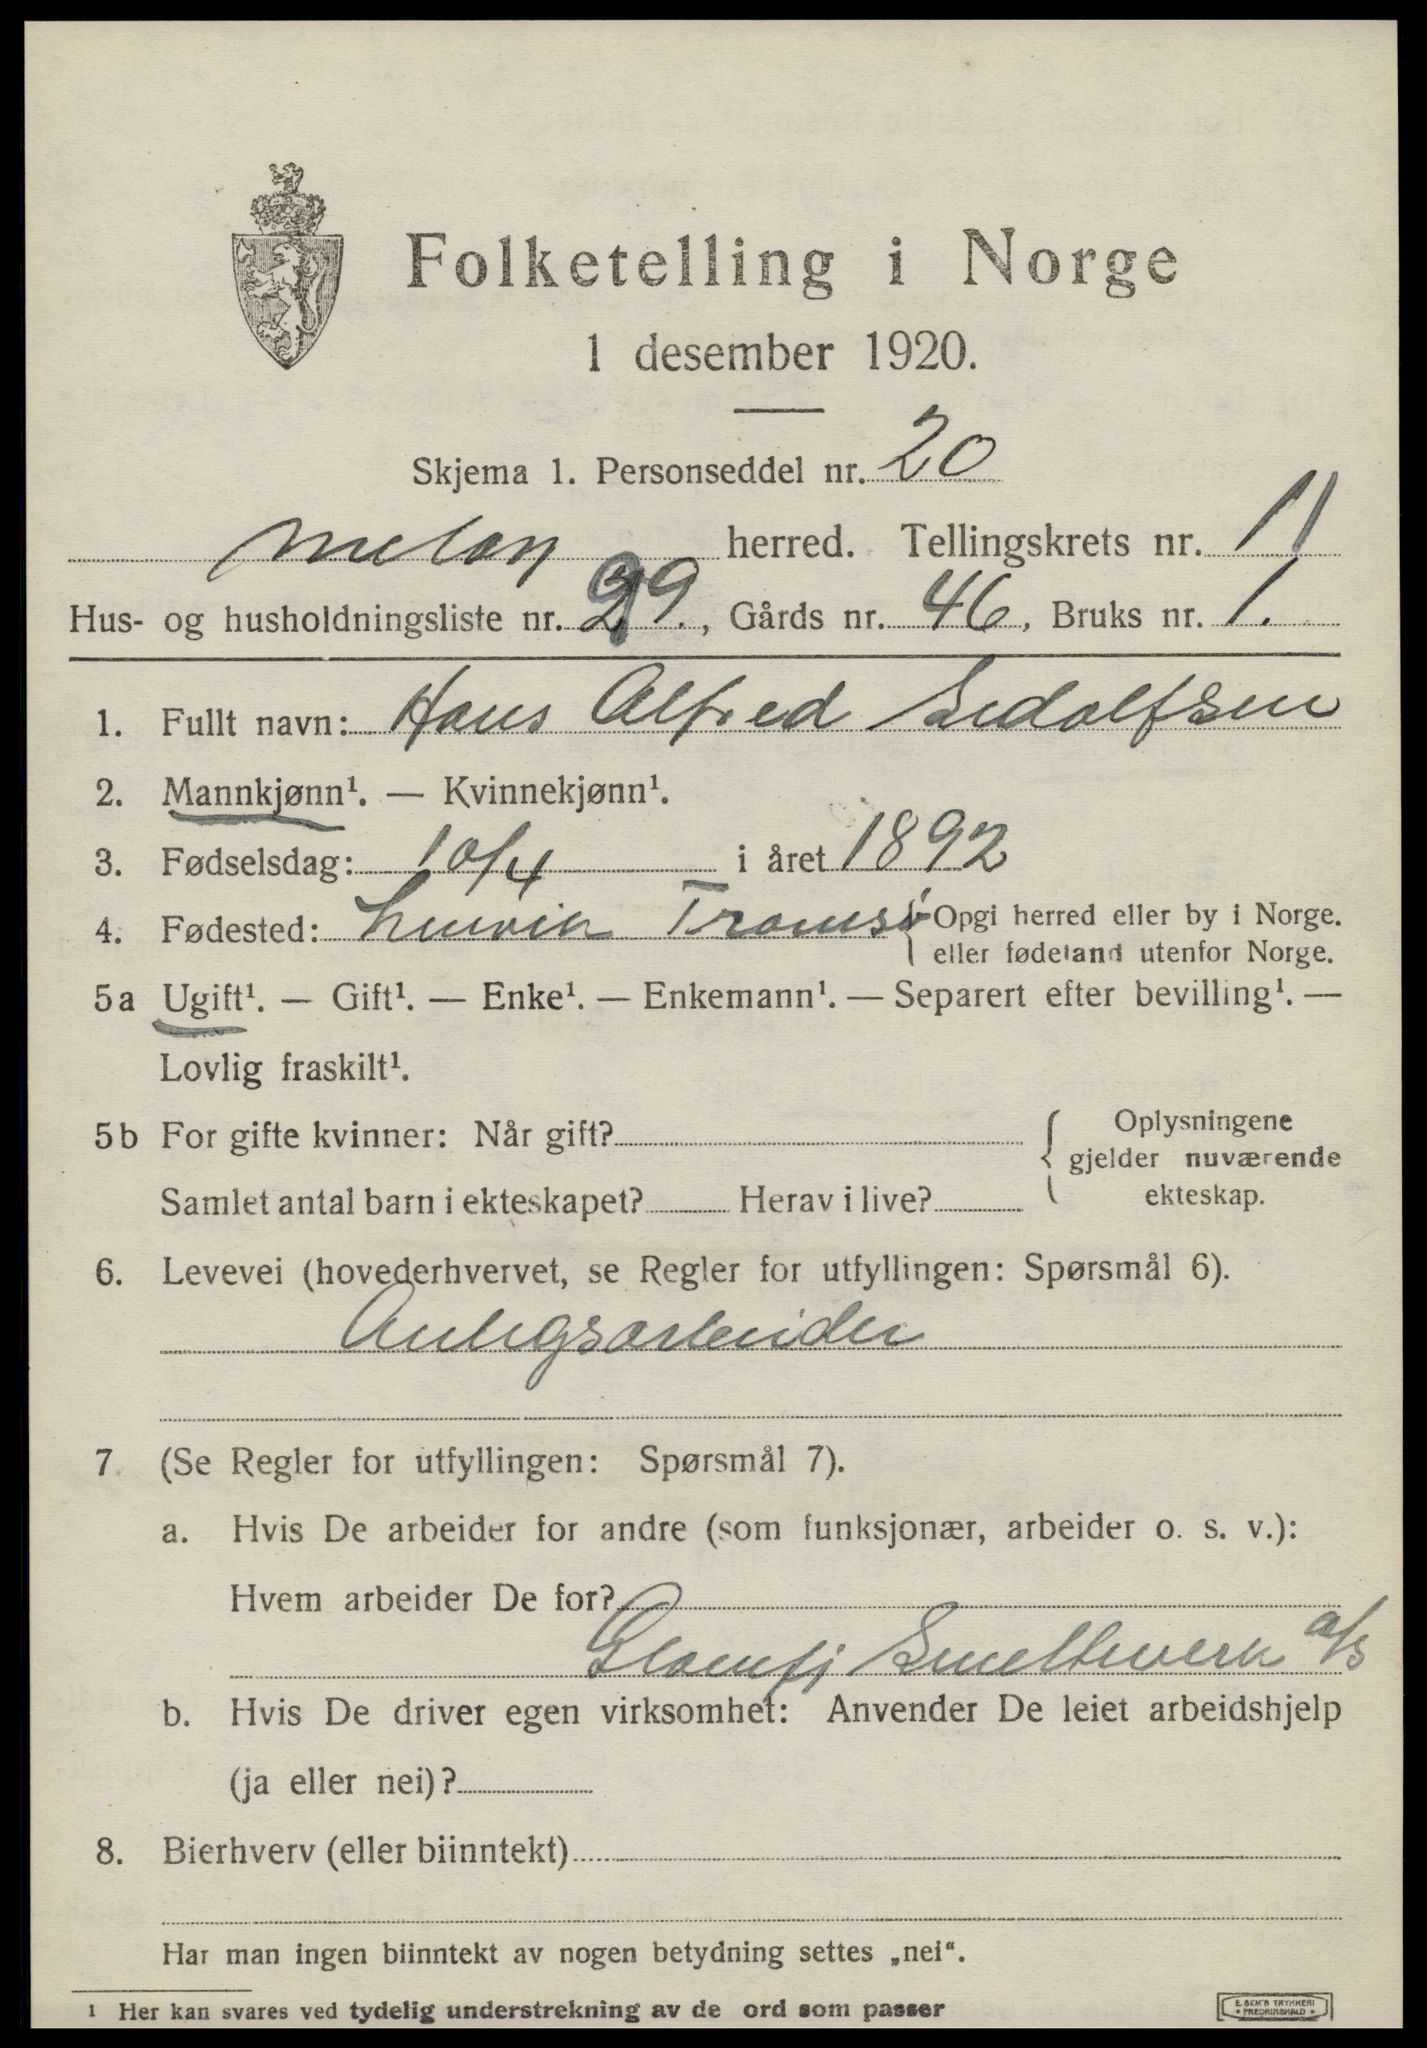 Folketelling i Norge
1 desember 1920.
Skjema 1. Personseddel nr. 20
Meløy herred. Tellingskrets nr. 11
Hus- og husholdningsliste nr. 29., Gårds nr. 46, Bruks nr. 1.
1. Fullt navn: Hans Alfred Edolfsen
2. Mannkjønn¹. — Kvinnekjønn¹.
3. Fødselsdag: 10/4 i året 1892
4. Fødested: Lenvik Tromsø { Opgi herred eller by i Norge.
eller fødeland utenfor Norge.
5a Ugift¹. — Gift¹. — Enke¹. — Enkemann¹. — Separert efter bevilling¹. —
Lovlig fraskilt¹.
5b For gifte kvinner: Når gift? { Oplysningene
gjelder nuværende
Samlet antal barn i ekteskapet? Herav i live? ekteskap.
6. Levevei (hovederhvervet, se Regler for utfyllingen: Spørsmål 6).
Anlegsarbeider
7. (Se Regler for utfyllingen: Spørsmål 7).
a. Hvis De arbeider for andre (som funksjonær, arbeider o. s. v.):
Hvem arbeider De for?
Glomfj Smelteverk a/s
b. Hvis De driver egen virksomhet: Anvender De leiet arbeidshjelp
(ja eller nei)?
8. Bierhverv (eller biinntekt)
Har man ingen biinntekt av nogen betydning settes „nei“.
¹ Her kan svares ved tydelig understrekning av de ord som passer
E. SEM'S TRYKKERI
FREDRIKSHALD